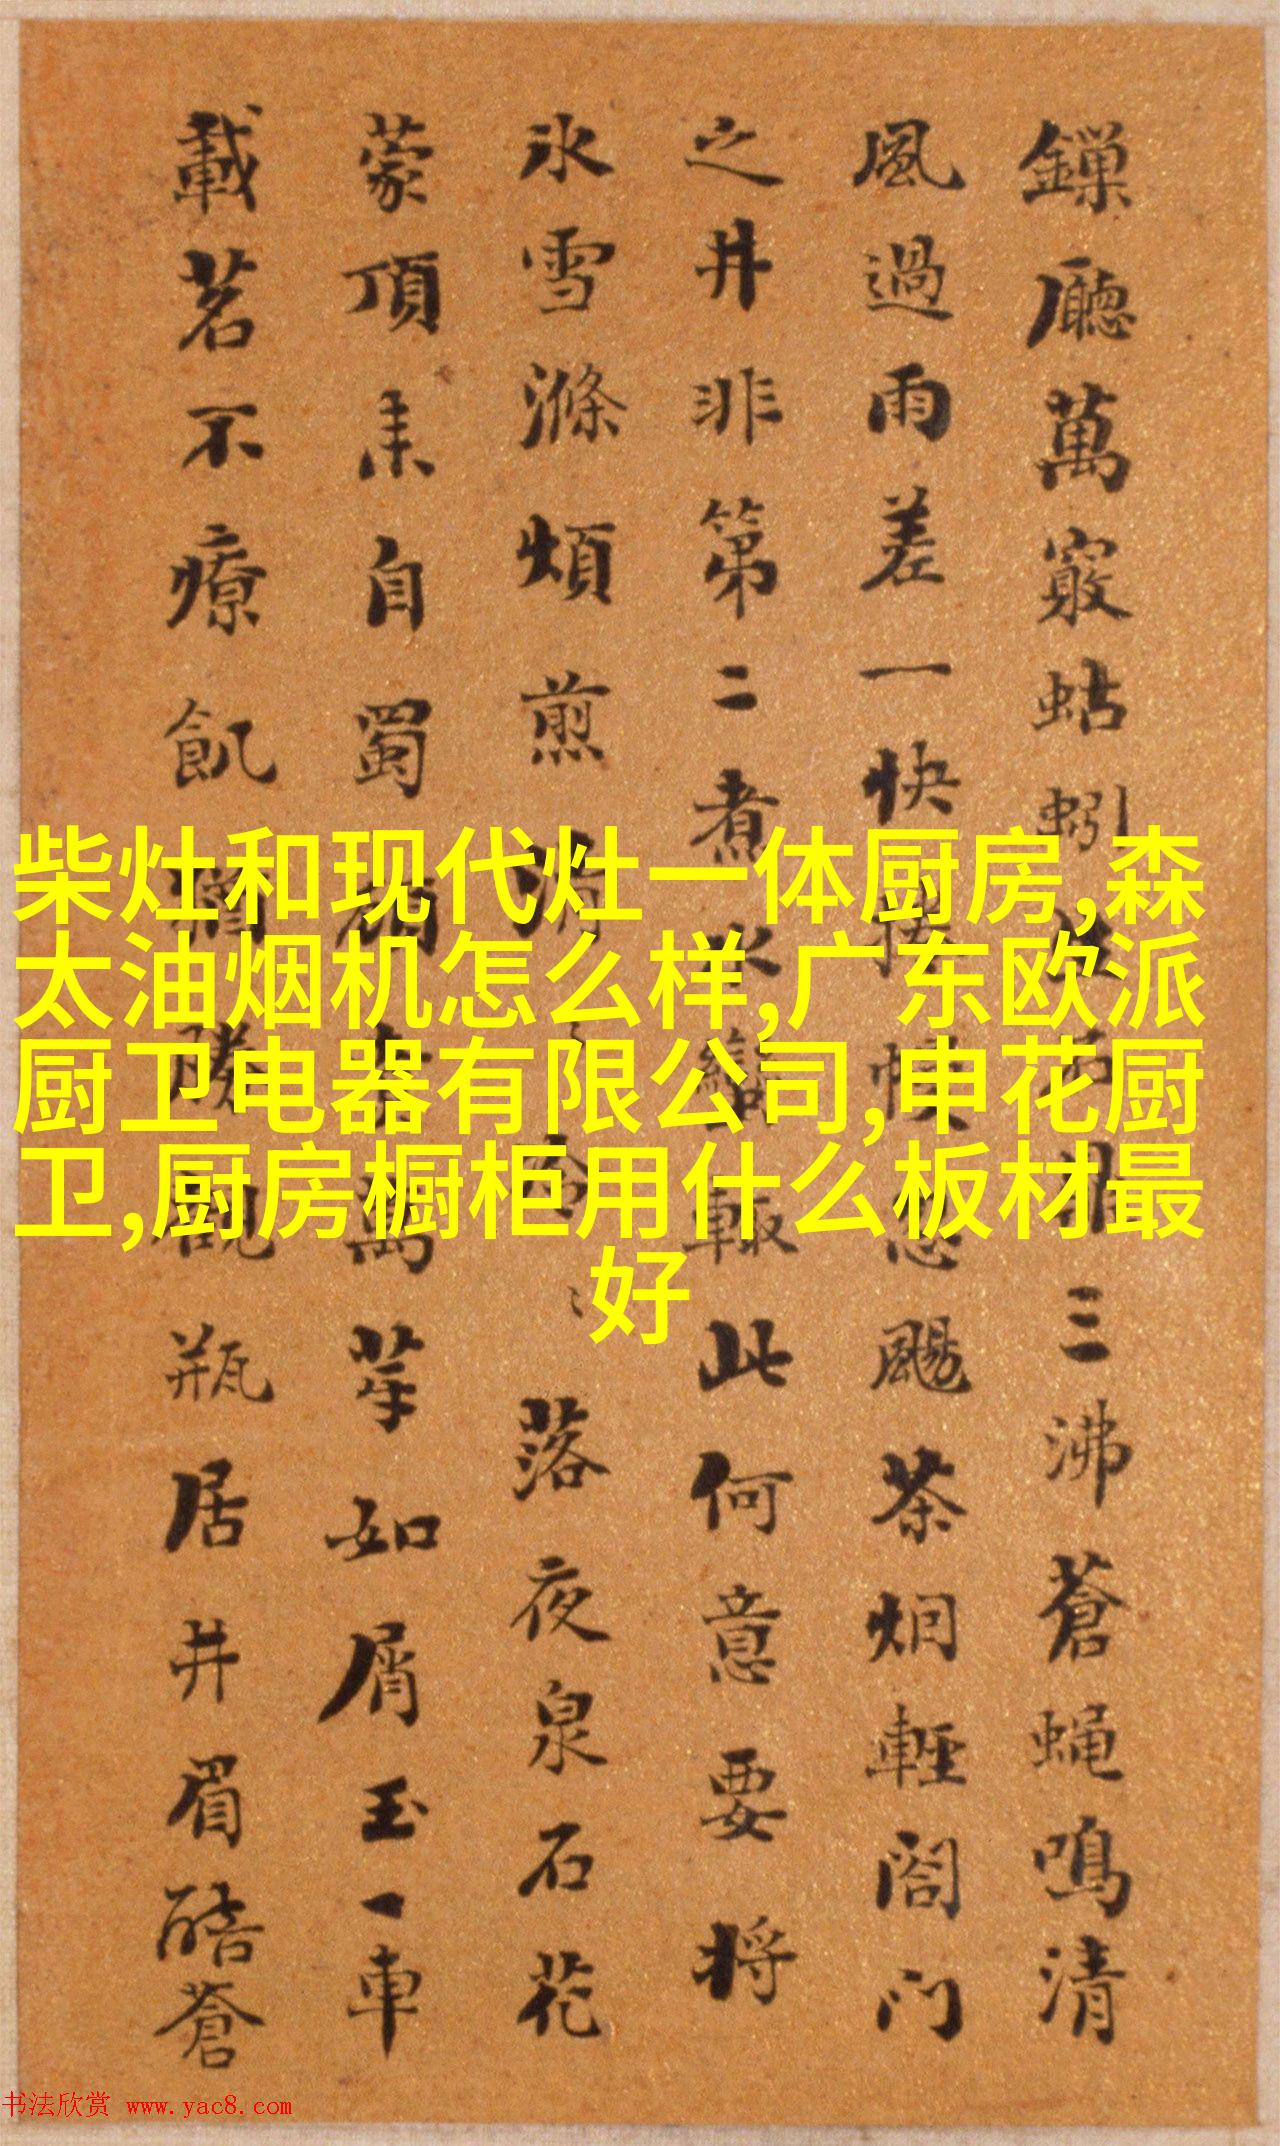 柴灶和现代灶一体厨房,森
太油烟机怎么样,广东欧派
厨卫电器有限公司,申花厨
卫,厨房橱柜用什么板材最
好
廳萬竅蚓三沸蒼蝇鳴清
風過雨差一快颺茶烟輕閤門
之井非第二煮輙此何意要将
氷雪滌煩煎落夜泉石花
蒙頂来自蜀萬芽如屑玉一車
載茗不療飢瓶居井眉酷蒼
书法欣赏 www.yac8.com